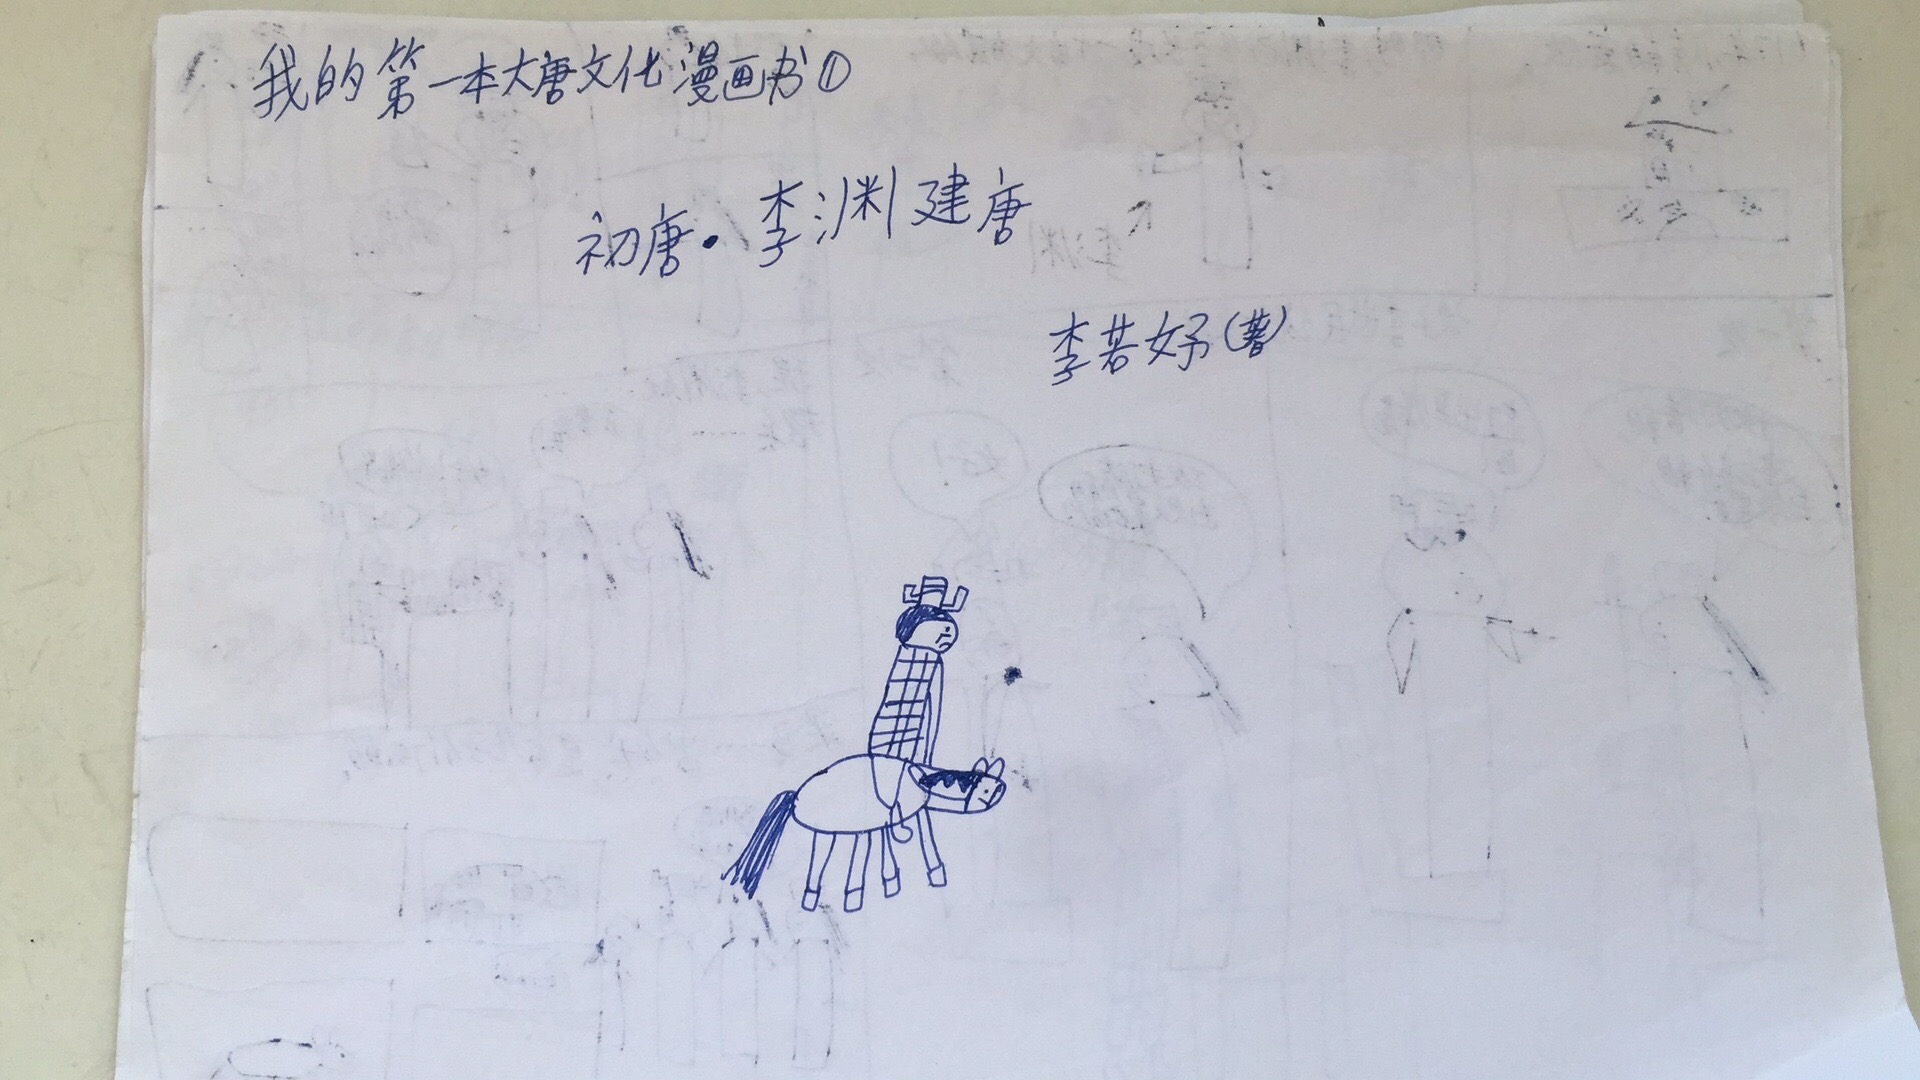 我的第一本大唐文化漫画书①
初唐·李渊建唐
李若妤(著)